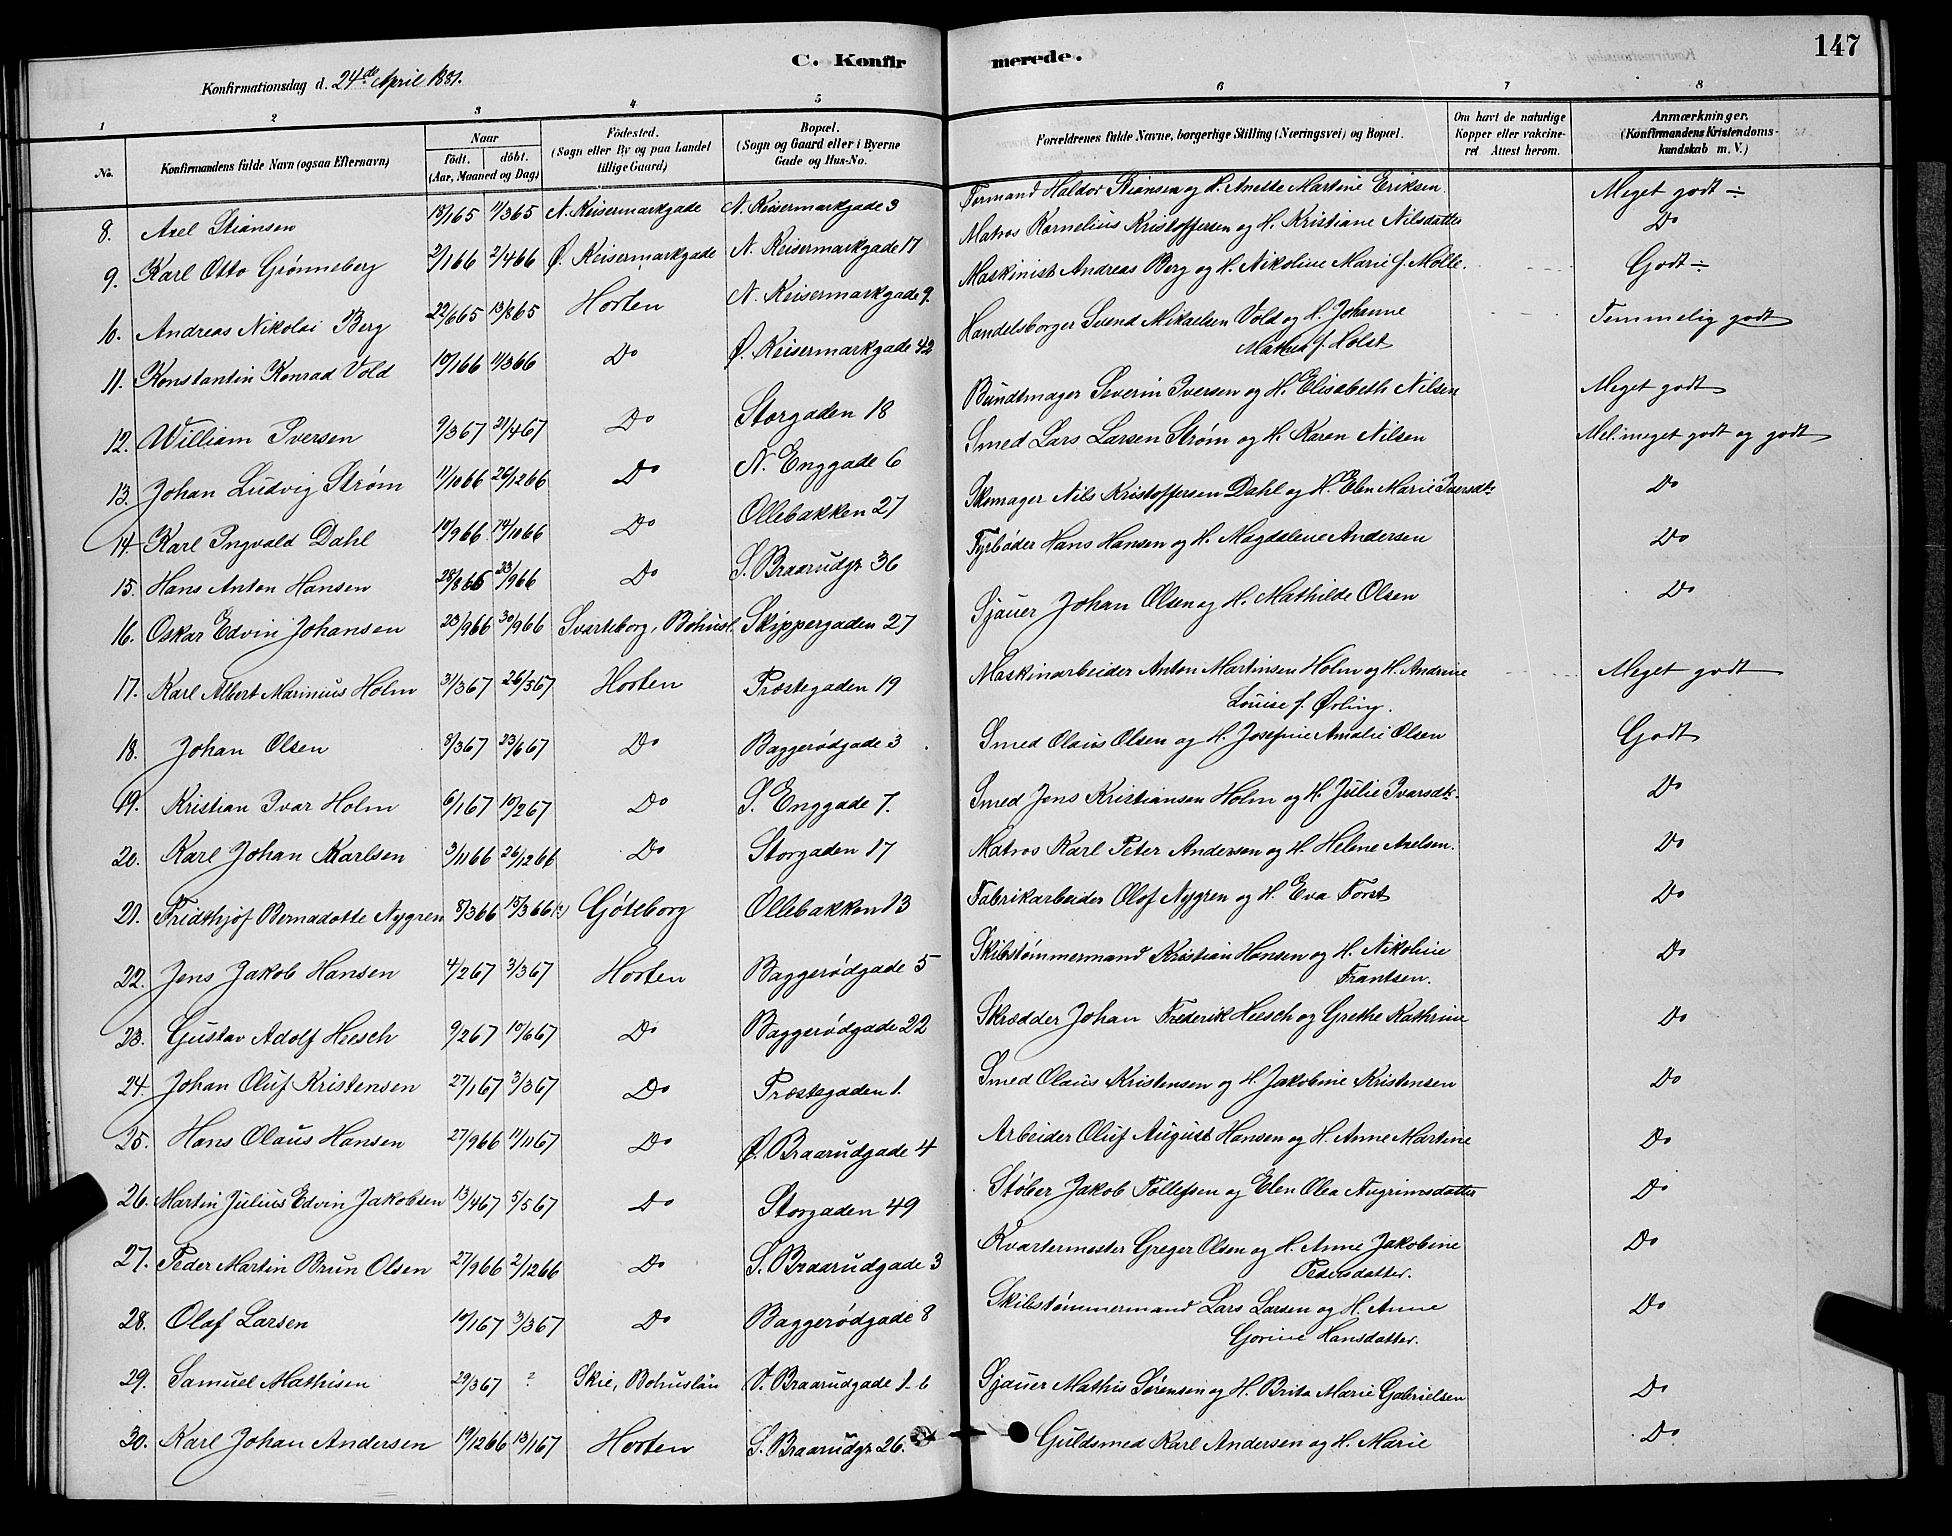 147
C. Konfirmerede.
Konfirmationsdag d. 24de April 1881.
1 2 3 4 5 6 7 8
No. Konfirmandens fulde Navn (ogsaa Efternavn) Naar födt. döbt. (Aar, Maaned og Dag) Födested. (Sogn eller By og paa Landet tillige Gaard) Bopæl. (Sogn og Gaard eller i Byerne Gade og Hus-No. Forældrenes fulde Navne, borgerlige Stilling (Næringsvei) og Bopæl. Om havt de naturlige Kopper eller vakcineret. Attest herom. Anmærkninger. (Konfirmandens Kristendomskundskab m. V.)
8. Axel Stiansen 18/1 65 11/3 65 N. Keisermarkgade N. Keisermarkgade 3 Formand Haldor Stiansen og H. Anette Martine Eriksen. Meget godt ÷
9. Karl Otto Grønneberg 2/1 66 2/4 66 Ø. Keisermarkgade N. Keisermarkgade 17 Matros Kornelius Kristoffersen og H. Kristiane Nilsdatter Do
10. Andreas Nikolai Berg 22/6 65 13/8 65 Horten N. Keisermarkgade 9. Maskinist Andreas Berg og H. Nikoline Marie f. Molle. Godt ÷
11. Konstantin Konrad Vold 10/1 66 11/3 66 Do Ø. Keisermarkgade 42 Handelsborger Svend Mikaelsen Vold og H. Johanne
f. Holst Temmelig godt
12. William Iversen 9/3 67 21/4 67 Do Storgaden 18 Bundtmager Severin Iversen og H. Elisabeth Nilsen Meget godt
13. Johan Ludvig Strøm 11/10 66 26/12 66 Do N. Enggade 6 Smed Lars Larsen Strøm og H. Karen Nilsen Mel. meget godt og godt
14. Karl Ingvald Dahl 10/9 66 14/10 66 Do Ollebakken 27 Skomager Nils Kristoffersen Dahl og H. Elen Marie Iversdt. Do
15. Hans Anton Hansen 28/8 66 23/9 66 Do S. Braarudgt 36 Fyrbøder Hans Hansen og H. Magdalene Andersen Do
16. Oskar Edvin Johansen 23/9 66 30/9 66 Svarteborg, Bohusl. Skippergaden 27 Sjauer Johan Olsen og H. Mathilde Olsen Do
17. Karl Albert Marinius Holm 31/3 67 26/5 67 Horten Præstegaden 19 Maskinarbeider Anton Martinsen Holm og H. Andrine
Louise f. Ørling. Meget godt
18. Johan Olsen 8/3 67 23/6 67 Do Baggerødgade 3 Smed Olaus Olsen og H. Josefine Amalie Olsen Godt
19. Kristian Ivar Holm 6/1 67 10/2 67 Do S. Enggade 7. Smed Jens Kristiansen Holm og H. Julie Ivarsdt. Do
20. Karl Johan Karlsen 3/11 66 26/12 66 Do Storgaden 17 Matros Karl Peter Andersen og H. Helene Axelsen. Do
21. Fridthjof Bernadotte Nygren 8/3 66 15/3 66 Gøteborg Ollebakken 13 Fabrikarbeider Olof Nygren og H. Eva Forst Do
22. Jens Jakob Hansen 4/2 67 3/3 67 Horten Baggerødgade 5 Skibstømmermand Kristian Hansen og H. Nikoline
Frantsen. Do
23. Gustav Adolf Heesch 9/2 67 10/6 67 Do Baggerødgade 22 Skrædder Johan Frederik Heesch og Grethe Kathrine Do
24. Johan Oluf Kristensen 27/1 67 3/3 67 Do Præstegaden 1. Smed Olaus Kristensen og H. Jakobine Kristensen Do
25. Hans Olaus Hansen 27/9 66 11/11 67 Do Ø. Braarudgade 4 Arbeider Oluf August Hansen og H. Anne Martine Do
26. Martin Julius Edvin Jakobsen 13/4 67 5/5 67 Do Storgaden 49 Støber Jakob Tollefsen og Elen Olea Augrimsdatter Do
27. Peder Martin Brun Olsen 27/9 66 2/12 66 Do S. Braarudgade 3 Kvartermester Greger Olsen og H. Anne Jakobine
Pedersdatter. Do
28. Olaf Larsen 10/1 67 3/3 67 Do Baggerødgade 8 Skibstømmermand Lars Larsen og H. Anne
Gorine Hansdatter. Do
29. Samuel Mathisen 29/3 67 ? Skee, Bohuslän V. Braarudgade 1 b Sjauer Mathis Sørensen og H. Brita Marie Gabrielsen Do
30. Karl Johan Andersen 19/12 66 13/1 67 Horten S. Braarudgt 26. Guldsmed Karl Andersen og H. Marie Do